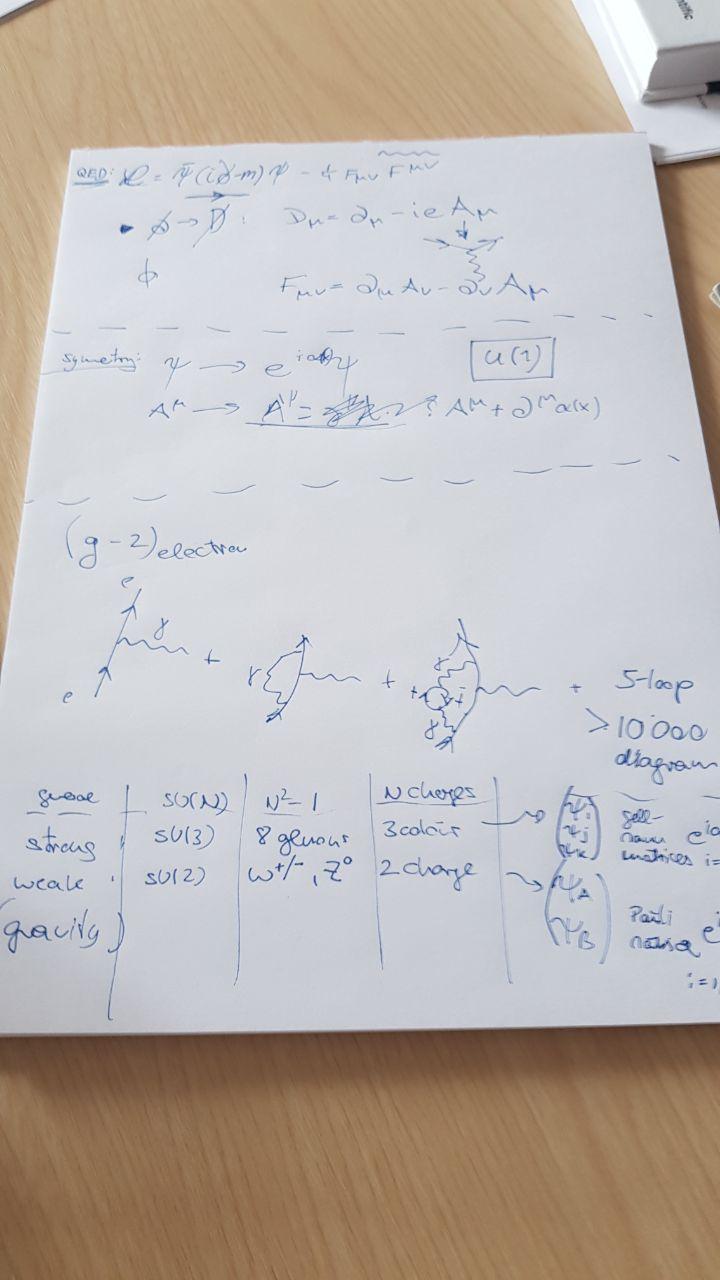 QED: ℒ = ψ̄(i∂̸-m)ψ - ¼ Fμν F^μν
• ∂̸ → D̸ : Dμ = ∂μ - ie Aμ
Fμν = ∂μ Aν - ∂ν Aμ
Symetry: ψ → e^iα(x) ψ U(1)
A^μ → A'^μ = A^μ + ∂^μ α(x)
(g-2) electron
e
γ
e + γ + γ + - γ + 5-loop
> 10'000
diagram
SU(N) N²-1 N charges
strong SU(3) 8 gluons 3 colors ψi ψj ψk gell-mann matrices
weak SU(2) W+/-, Z⁰ 2 charge ψA ψB Pauli
(gravity)
i=1